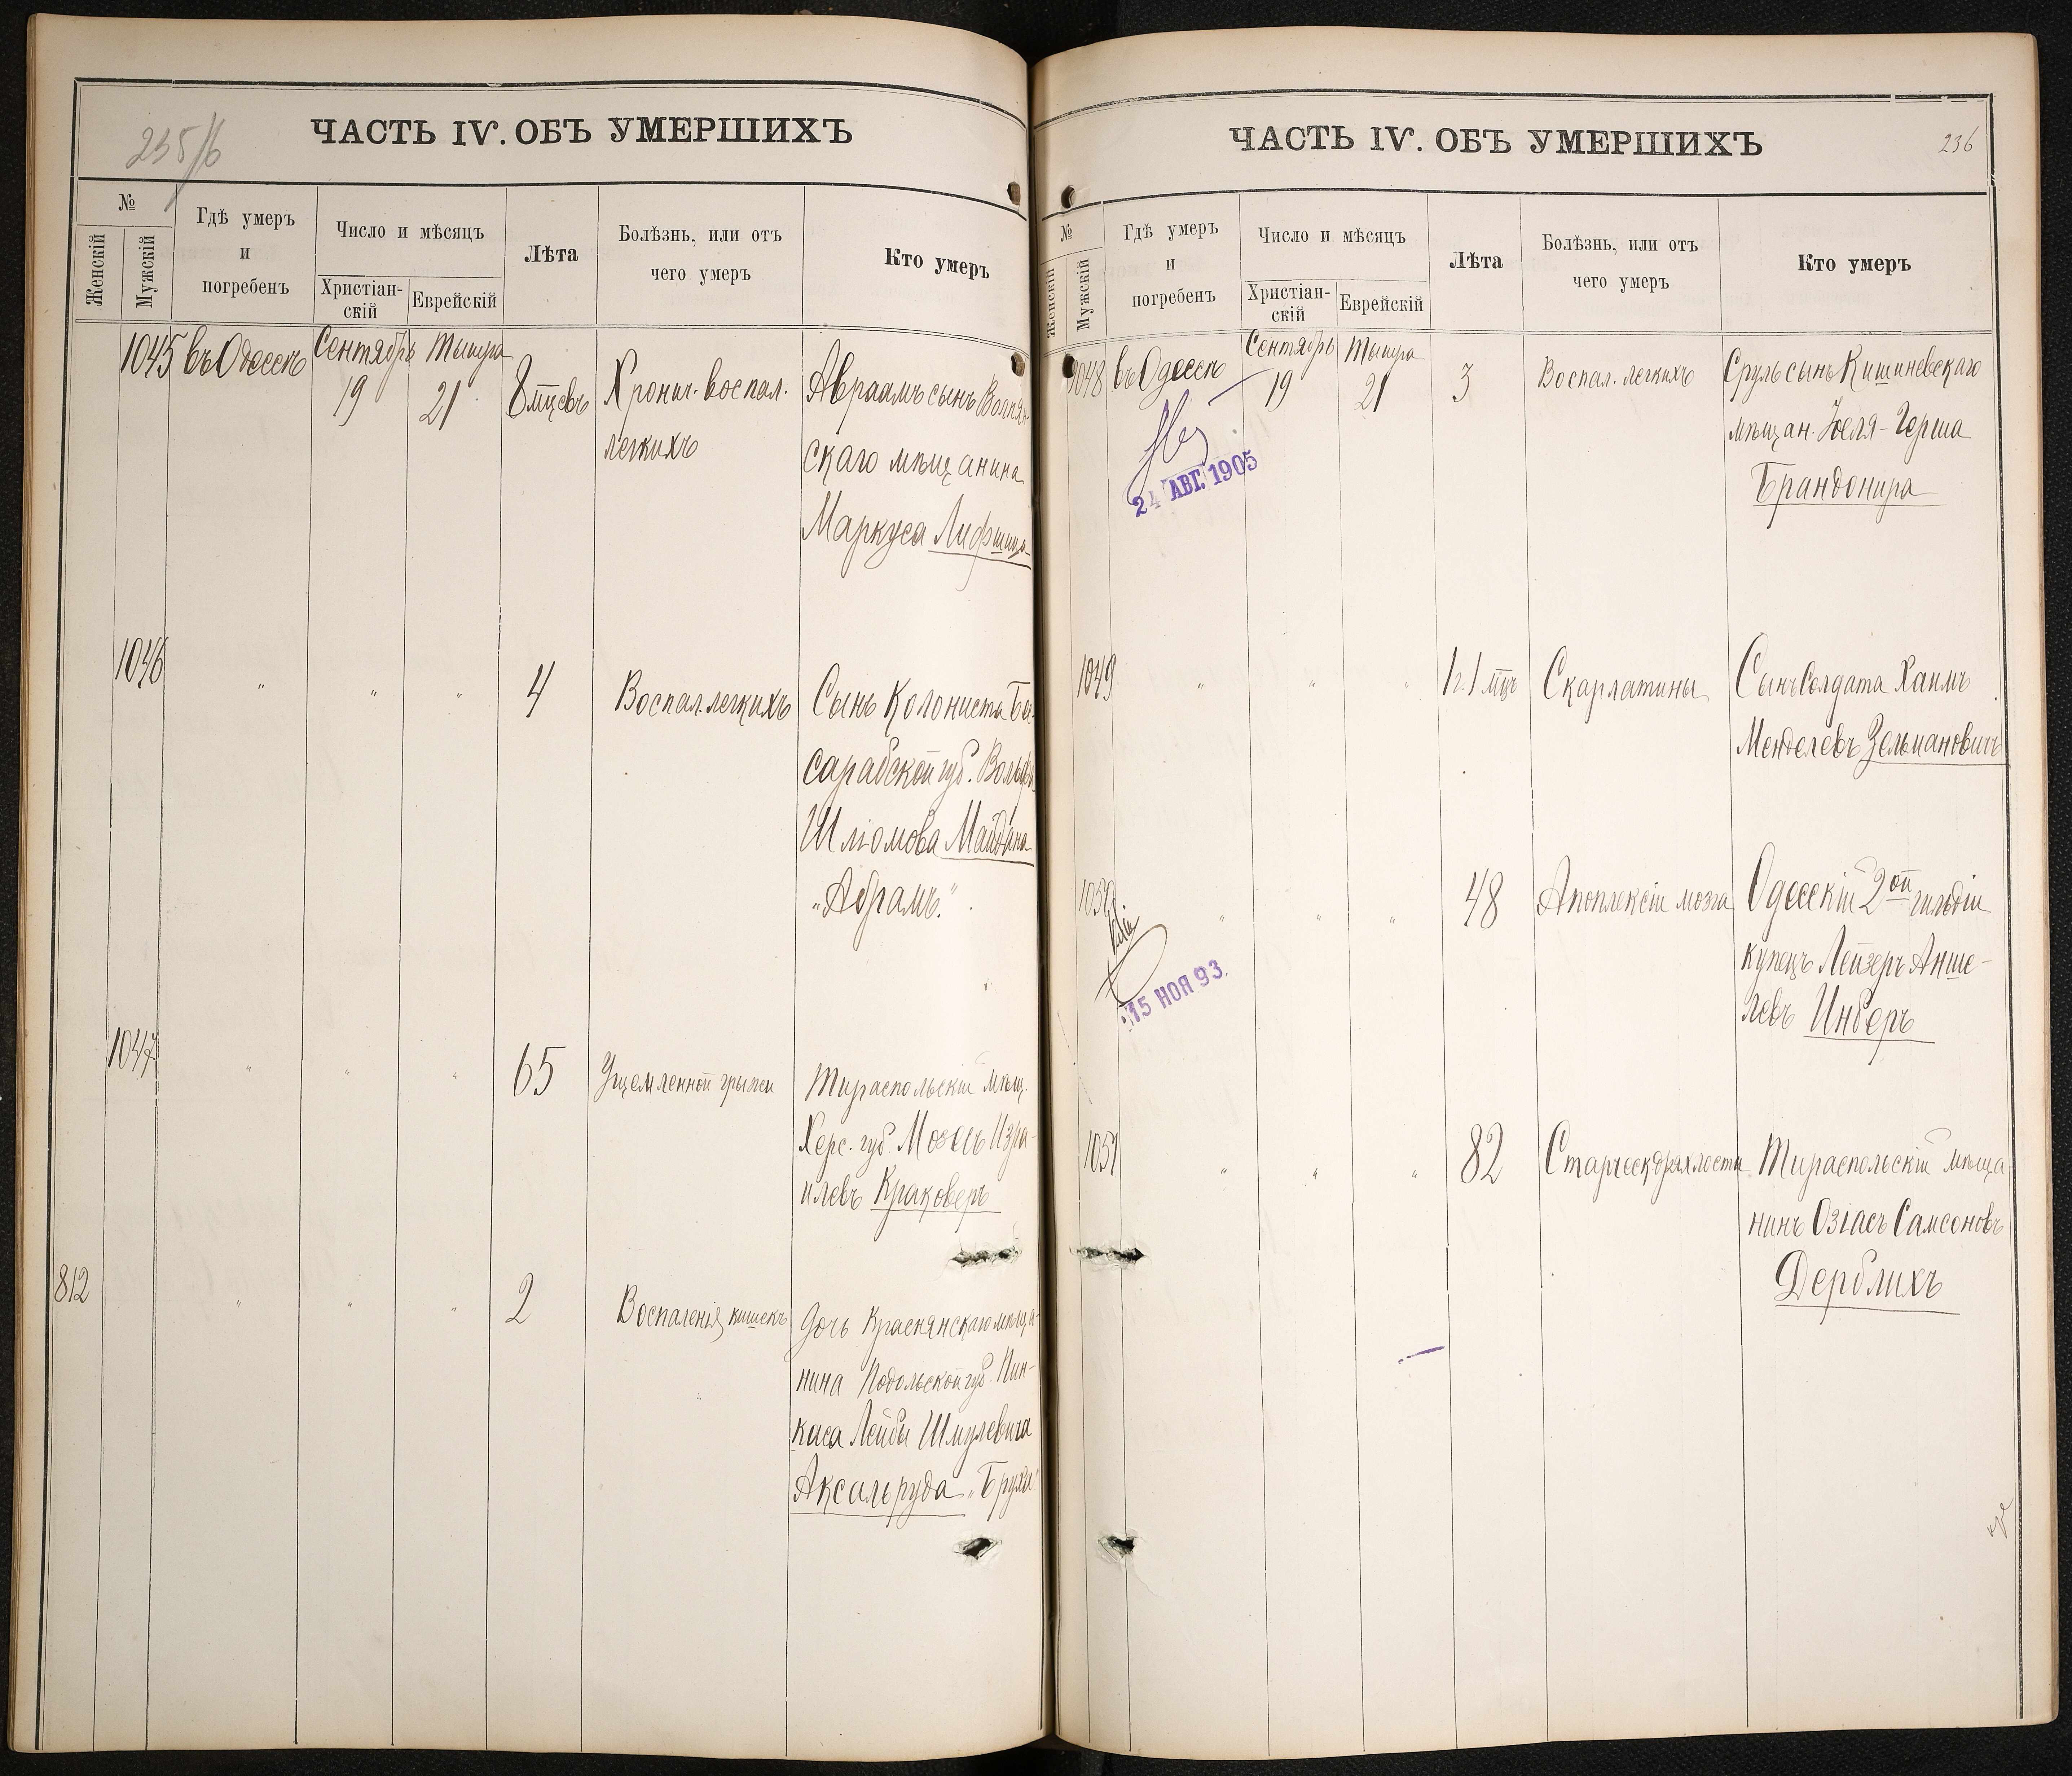 235/б
ЧАСТЬ IV. ОБЪ УМЕРШИХЪ
№
Женскій
Мужскій
Гдѣ умеръ
и
погребенъ
Число и мѣсяцъ
Христіан-
скій
Еврейскій
Лѣта
Болѣзнь, или отъ
чего умеръ
Кто умеръ
1045 въ Одессѣ Сентябрь Тышра
19 21 8 мцевъ Хронич. воспал. Авраамъ сынъ
легкихъ скаго мѣщанина
Маркуса Лифшица
1046 " " " 4 Воспал. легкихъ Сынъ Колониста Бе-
сарабской губ.
Шліомова Майдана
"Абрамъ".
1047 " " " 65 Ущемленной грыжи Тираспольскій мѣщ.
Херс. губ. Мозесъ Изра-
илевъ Краковеръ
812 " " " 2 Воспаленія кишекъ Дочь Краснянскаго мѣща-
нина Подольской губ. Пин-
каса Лейбы Шмулевича
Аксельруда "Бруха"
ЧАСТЬ IV. ОБЪ УМЕРШИХЪ
236
№
Женскій
Мужскій
Гдѣ умеръ
и
погребенъ
Число и мѣсяцъ
Христіан-
скій
Еврейскій
Лѣта
Болѣзнь, или отъ
чего умеръ
Кто умеръ
1048 въ Одессѣ Сентябрь Тышра
19 21 3 Воспал. легкихъ Сруль сынъ Кишиневскаго
мѣщан. Іоеля-Герша
Брандонира
24 АВГ. 1905
1049 " " " 1 г. 1 мцъ Скарлатины Сынъ Солдата Хаимъ
Менделевъ Зельмановичъ
1050 " " " 48 Апоплексіи мозга Одесскій 2ой гильдіи
купецъ Лейзеръ Анше-
левъ Инберъ
15 НОЯ 93.
1051 " " " 82 Старческ. дряхлости Тираспольскій мѣща-
нинъ Озіасъ Самсоновъ
Дерблихъ